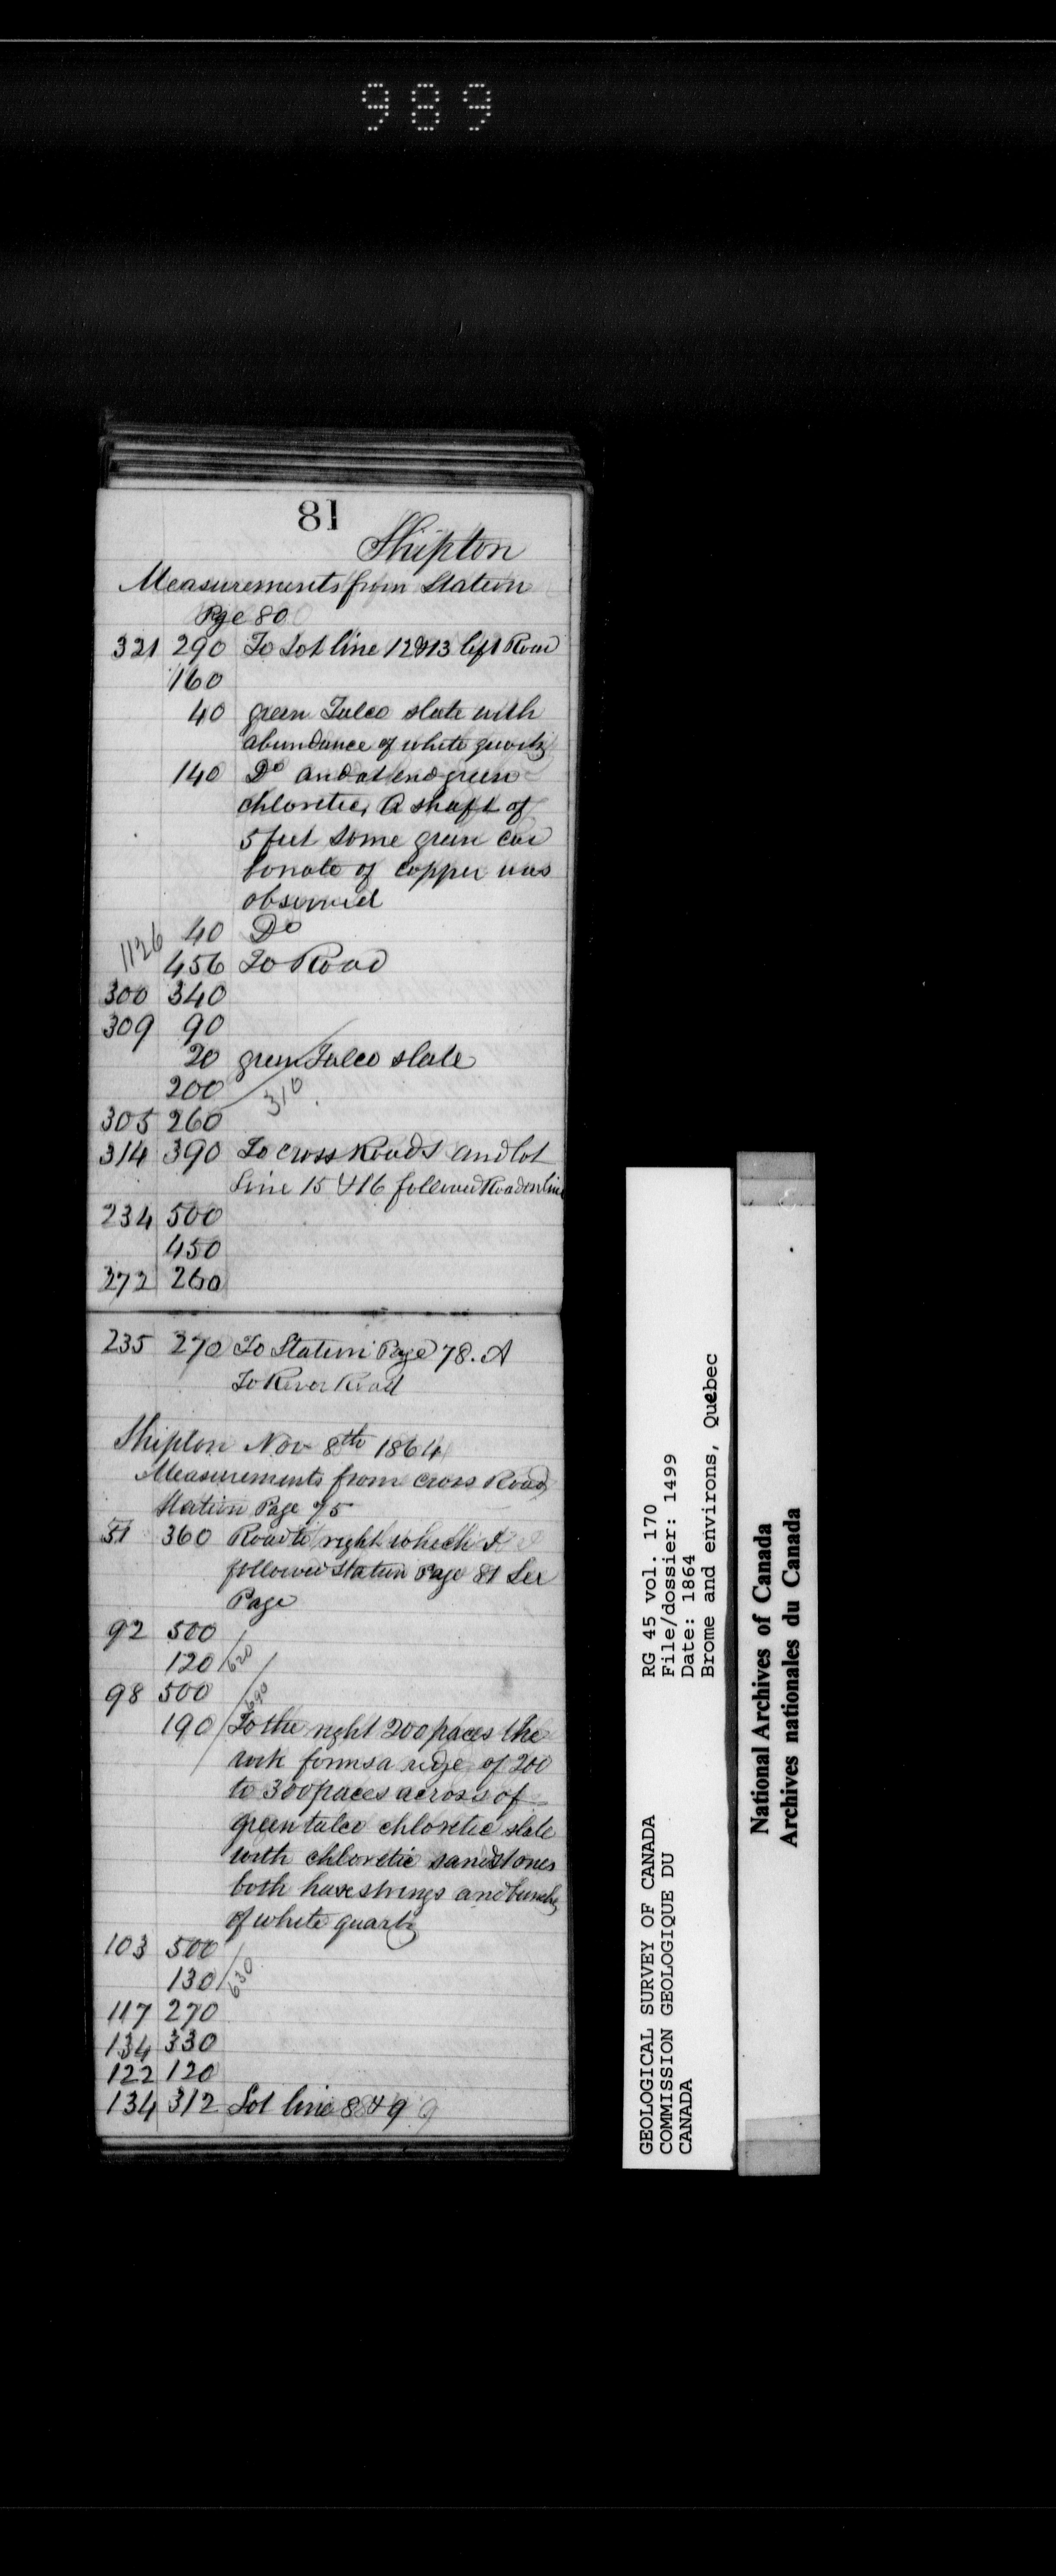 989
81
Shipton
Measurements from Station
Page 80
321 290 To Lot line 12 & 13 left Road
160
40 green Talco slate with
abundance of white quartz
140 Do and at end green
chloretic, A shaft of
5 feet some green car
bonate of copper was
observed
40 Do
1126
456 To Road
300 340
309 90
20 green Talco slate
200 310
305 260
314 390 To cross Roads and lot
Line 15 & 16 followed Road on line
234 500
450
272 260
235 270 To Station Page 78. A
To River Road
Shipton Nov 8th 1864
Measurements from cross Road
Station Page 75
51 360 Road to right which I
followed Station Page 81 See
Page
92 500
120 620
98 500
690
190 To the right 200 paces the
rock forms a ridge of 200
to 300 paces across of
green talco chloretic slate
with chloretic sandstones
both have strings and bunches
of white quartz
103 500
130 630
117 270
134 330
122 120
134 312 Lot line 8 & 9 9
GEOLOGICAL SURVEY OF CANADA
COMMISSION GEOLOGIQUE DU
CANADA
RG 45 vol. 170
File/dossier: 1499
Date: 1864
Brome and environs, Quebec
National Archives of Canada
Archives nationales du Canada